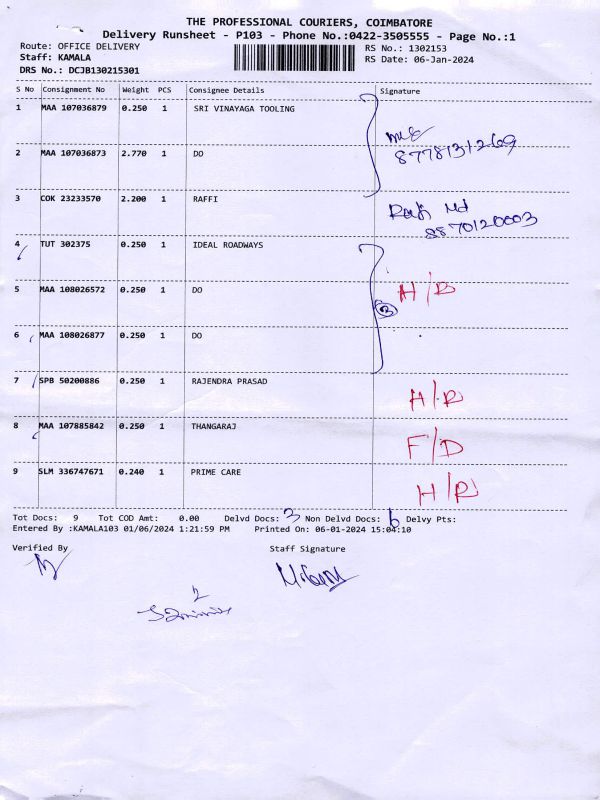 THE PROFESSIONAL COURIERS, COIMBATORE
Delivery Runsheet - P103 - Phone No.:0422-3505555 - Page No.:1
Route: OFFICE DELIVERY
RS No.: 1302153
Staff: KAMALA
RS Date: 06-Jan-2024
DRS No.: DCJB130215301
S No Consignment No Weight PCS Consignee Details Signature
1 MAA 107036879 0.250 1 SRI VINAYAGA TOOLING
8778131269
2 MAA 107036873 2.770 1 DO
3 COK 23233570 2.200 1 RAFFI
Md
8870120003
4 TUT 302375 0.250 1 IDEAL ROADWAYS
5 MAA 108026572 0.250 1 DO H/B
3
6 MAA 108026877 0.250 1 DO
7 SPB 50200886 0.250 1 RAJENDRA PRASAD H/R
8 MAA 107885842 0.250 1 THANGARAJ F/D
9 SLM 336747671 0.240 1 PRIME CARE H/R
Tot Docs: 9 Tot COD Amt: 0.00 Delvd Docs: 3 Non Delvd Docs: 6 Delvy Pts:
Entered By :KAMALA103 01/06/2024 1:21:59 PM Printed On: 06-01-2024 15:04:10
Verified By Staff Signature
2